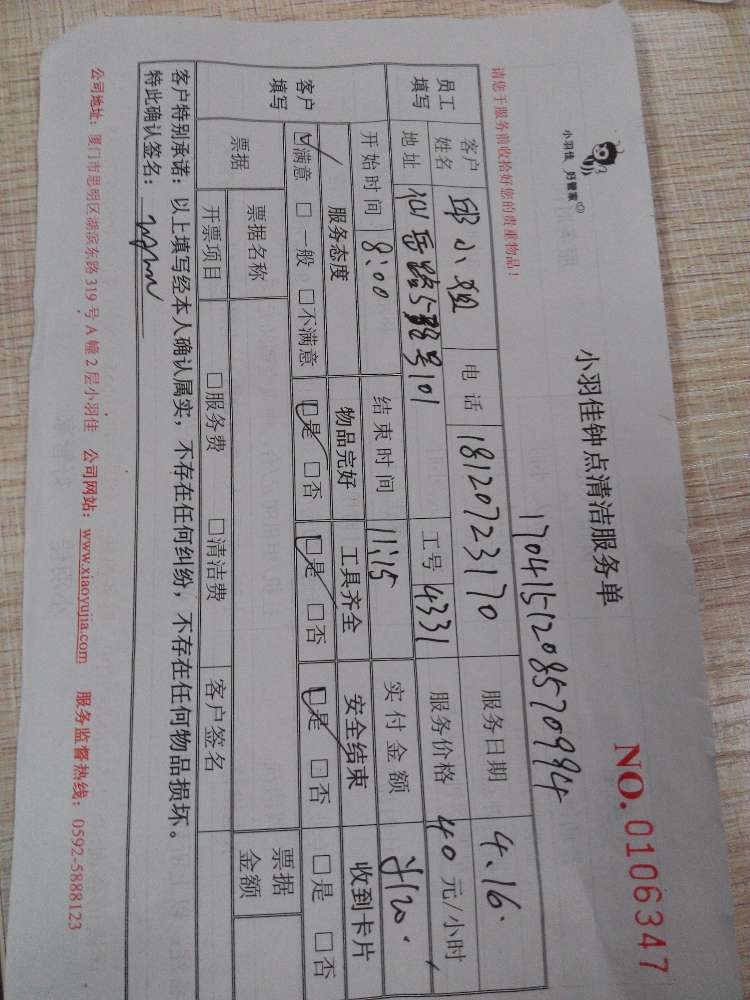 小羽佳 好管家
小羽佳钟点清洁服务单
NO. 0106347
1704151208570994
请您于服务前收拾好您的贵重物品！
员工填写 客户姓名 邱小姐 电话 18120723170 服务日期 4.16.
地址 仙岳路 号101 工号 4331 服务价格 40 元/小时
客户填写 开始时间 8:00 结束时间 11:15 实付金额 120.
服务态度 物品完好 工具齐全 安全结束 收到卡片
☑满意 □一般 □不满意 ☑是 □否 ☑是 □否 ☑是 □否 □是 □否
票据 票据名称 票据金额
开票项目 □服务费 □清洁费 客户签名
客户特别承诺：以上填写经本人确认属实，不存在任何纠纷，不存在任何物品损坏。
特此确认签名：
公司地址：厦门市思明区湖滨东路 319 号 A 幢 2 层小羽佳 公司网站：www.xiaoyujia.com 服务监督热线：0592-5888123